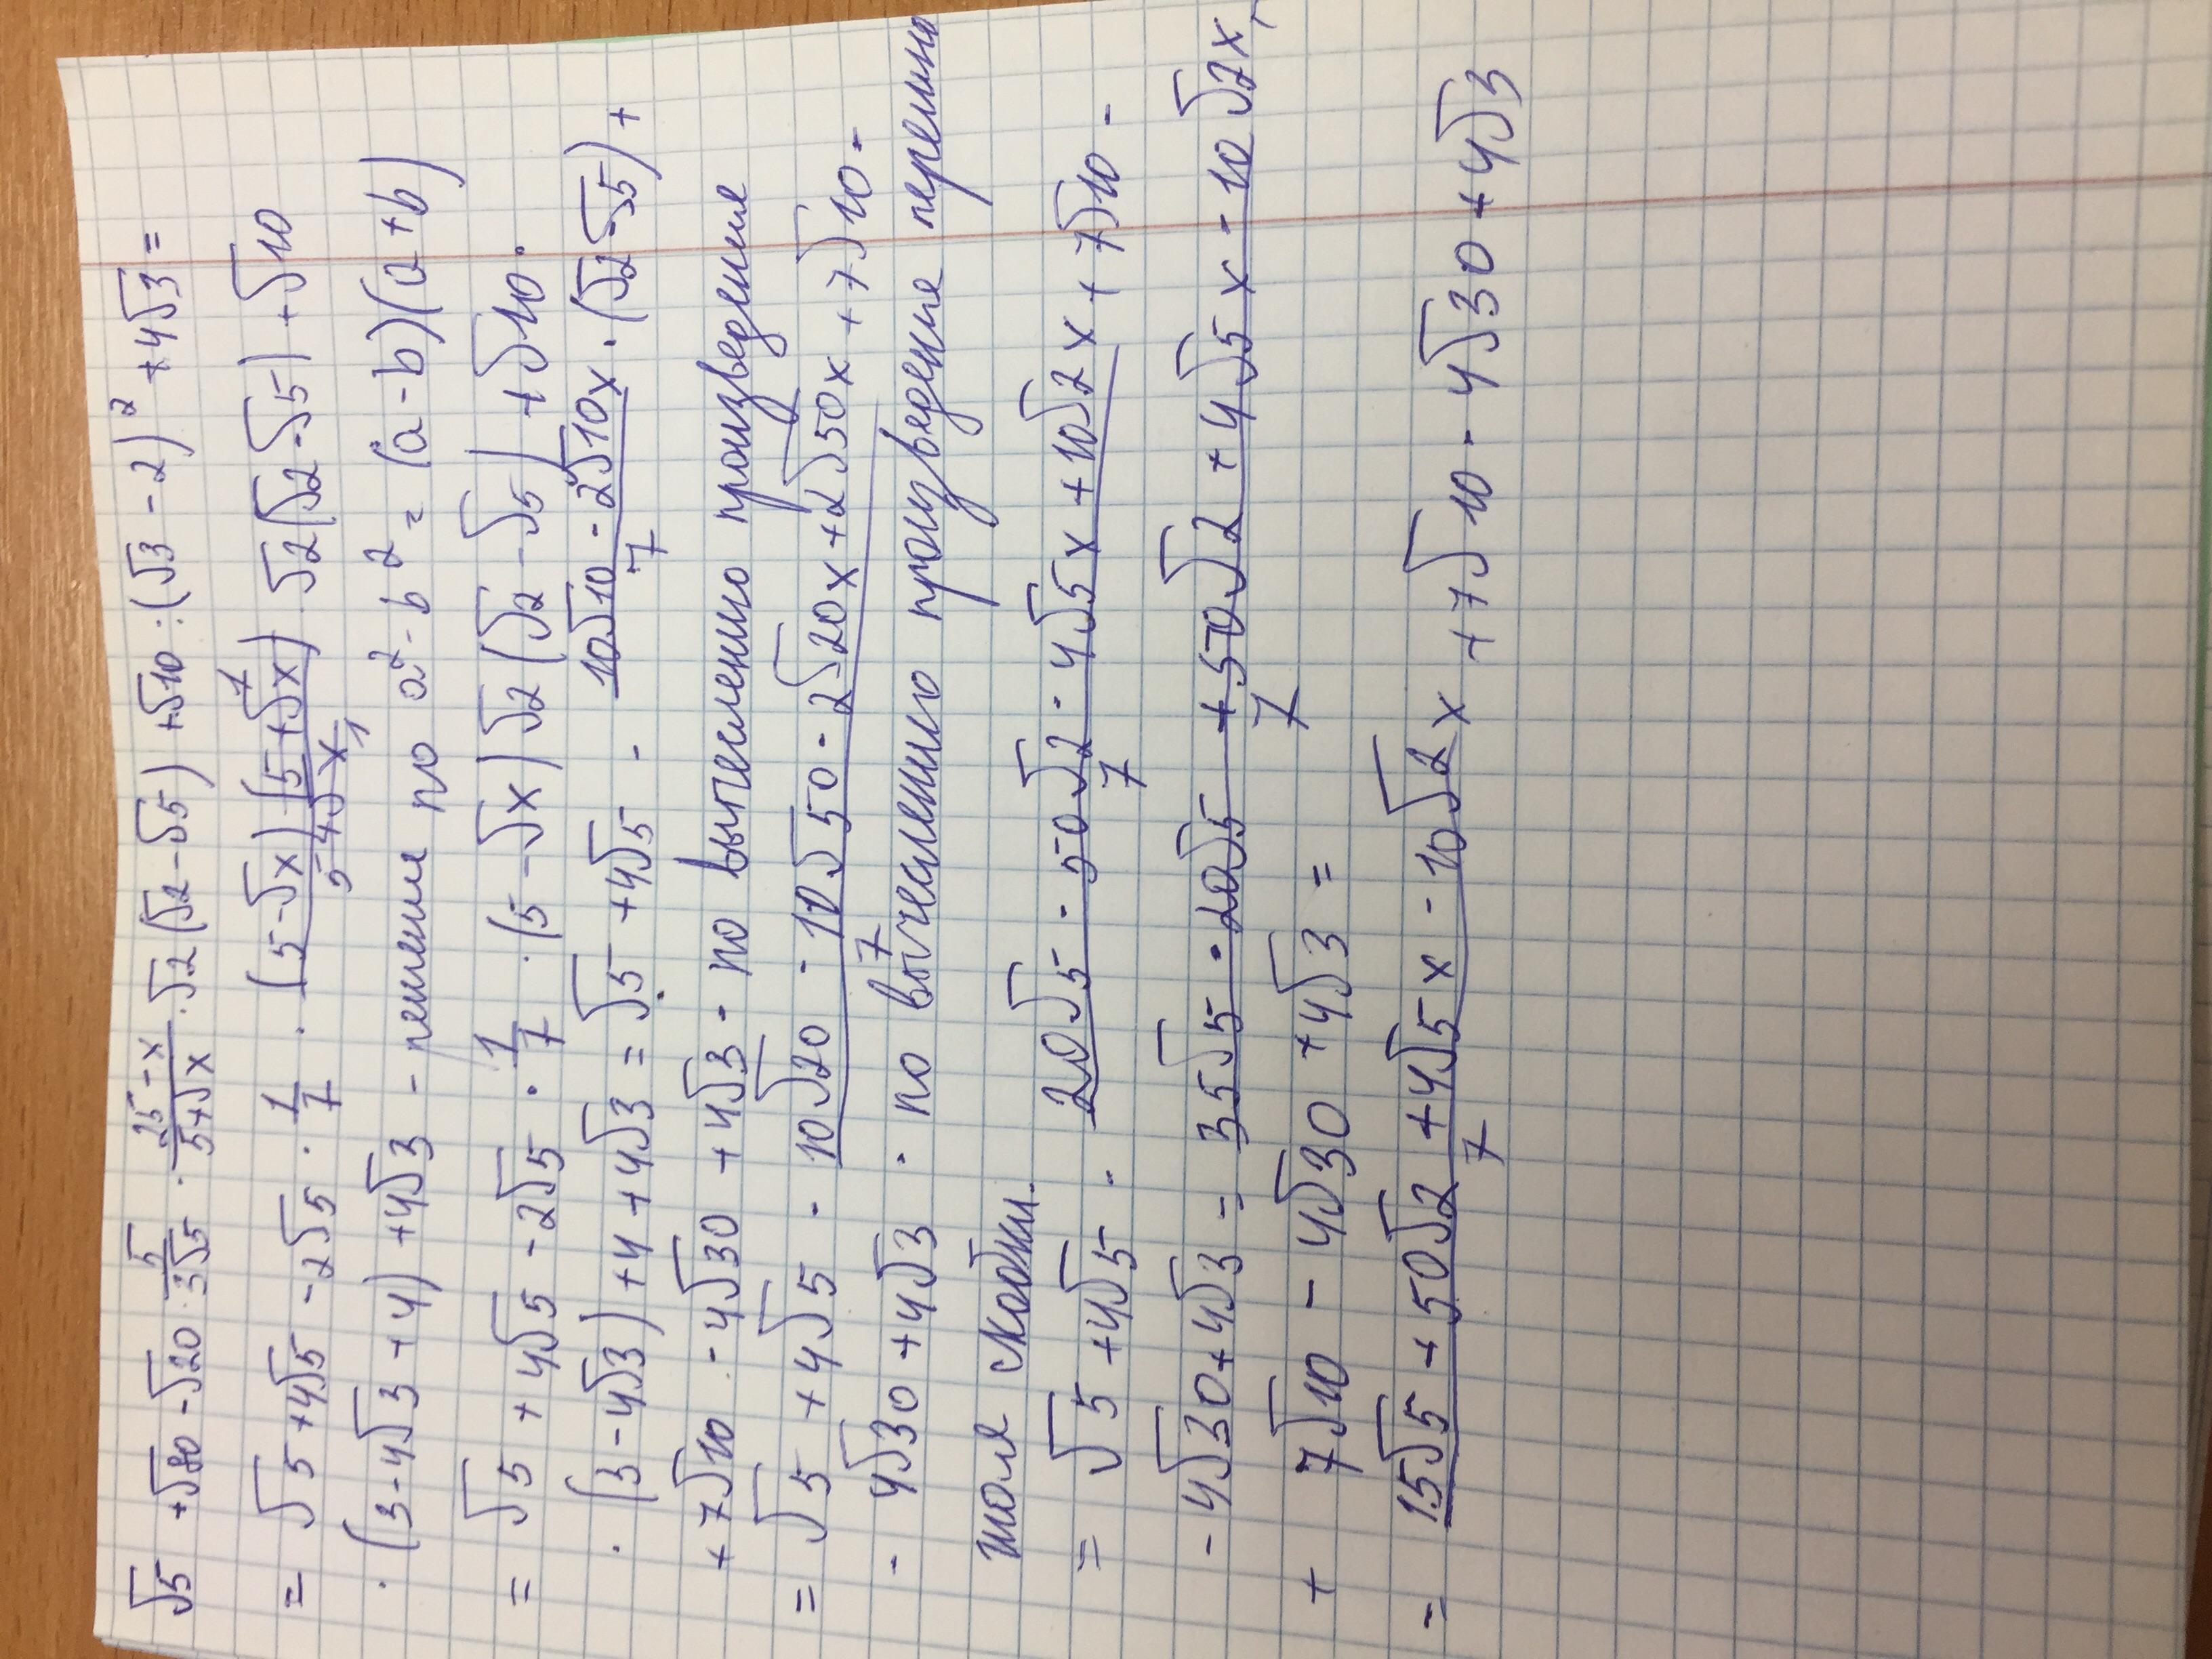 √5 + √80 - √20 · 5/(3√5) · (25-x)/(5+√x) · √2(√2-√5) + √10 : (√3 - 2)² + 4√3 =
= √5 + 4√5 - 2√5 · 1/7 · (5-√x)(5+√x)/(5+√x) · √2(√2-√5) + √10
· (3-4√3+4) + 4√3 - решили по a² - b² = (a-b)(a+b)
= √5 + 4√5 - 2√5 · 1/7 · (5-√x)√2(√2-√5) + √10 ·
· (3-4√3) + 4 + 4√3 = √5 + 4√5 - (10√10 - 2√10x)/7 · (√2-√5) +
+ 7√10 - 4√30 + 4√3 - по вычеслению произведение
= √5 + 4√5 - (10√20 - 10√50 - 2√20x + 2√50x)/7 + 7√10 -
- 4√30 + 4√3 - по вычеслению произведение перемно
жоля скобки.
= √5 + 4√5 - (20√5 - 50√2 - 4√5x + 10√2x)/7 + 7√10 -
- 4√30 + 4√3 = (35√5 - 20√5 + 50√2 + 4√5x - 10√2x)/7
+ 7√10 - 4√30 + 4√3 =
= (15√5 + 50√2 + 4√5x - 10√2x)/7 + 7√10 - 4√30 + 4√3